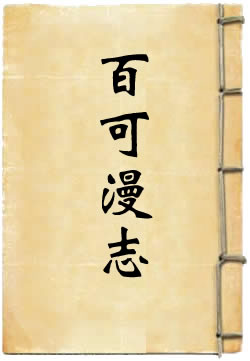 百可漫志